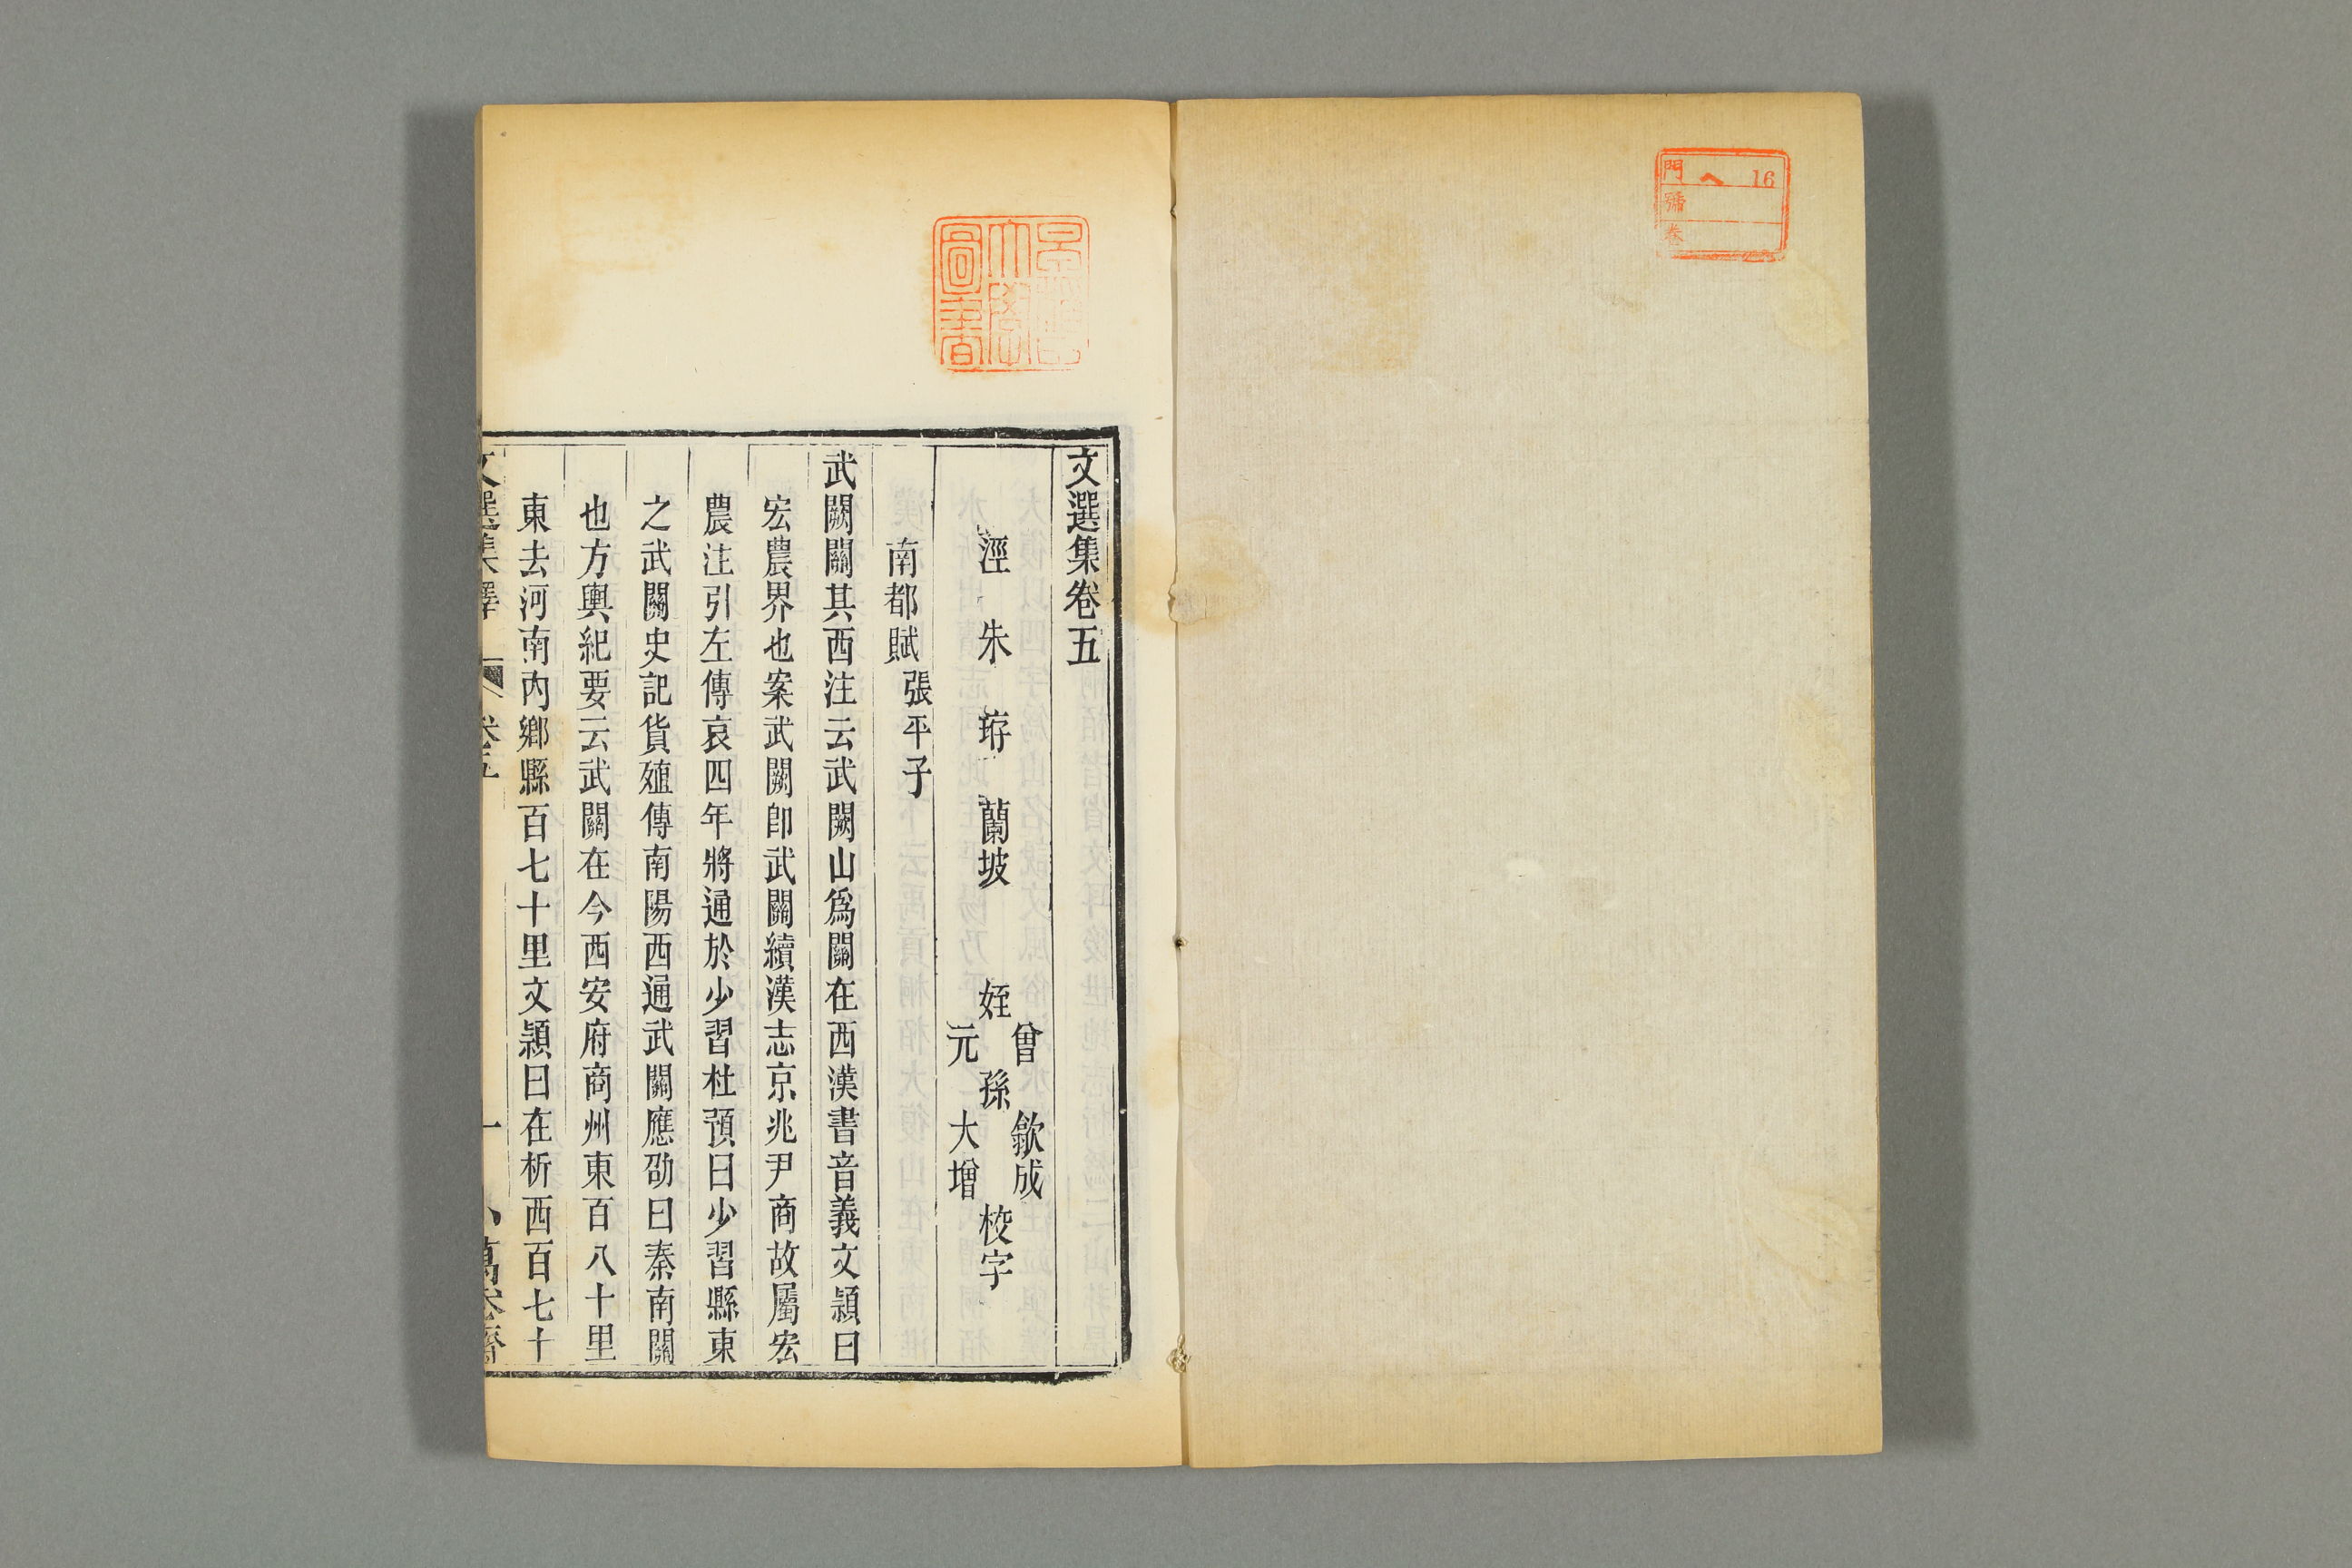 門 へ 16
號
卷
文選集卷五
涇 朱 珔 蘭坡 姪 曾 孫 歙成 校字
元 大增
南都賦 張平子
武闕關其西注云武闕山爲關在西漢書音義文穎曰
宏農界也案武闕卽武關續漢志京兆尹商故屬宏
農注引左傳哀四年將通於少習杜預曰少習縣東
之武關史記貨殖傳南陽西通武關應劭曰秦南關
也方輿紀要云武關在今西安府商州東百八十里
東去河南內鄉縣百七十里文穎曰在析西百七十
文選集釋 卷五 一